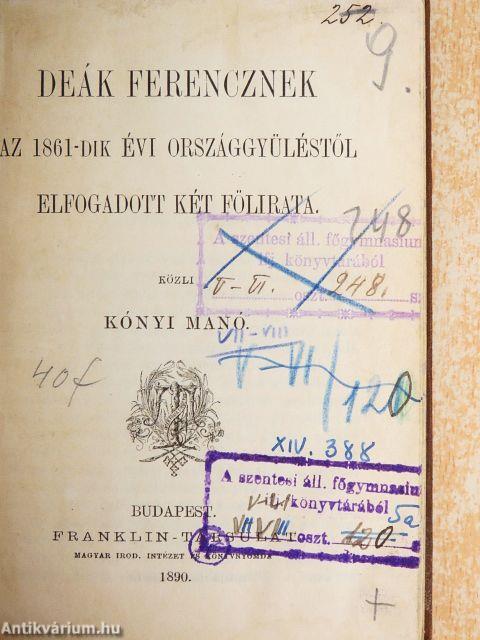 252.
9.
DEÁK FERENCZNEK
AZ 1861-DIK ÉVI ORSZÁGGYÜLÉSTŐL
ELFOGADOTT KÉT FÖLIRATA.
248
A szentesi áll. főgymnasium
ifj. könyvtárából
V-VI. oszt. 248. sz
KÖZLI
KÓNYI MANÓ.
VII-VIII
120
40f
XIV. 388
A szentesi áll. főgymnasiu
könyvtárából
5a
VII VIII oszt. 120-
BUDAPEST.
FRANKLIN-TÁRSULAT
MAGYAR IROD. INTÉZET ÉS KÖNYVNYOMDA
1890.
+
Antikvárium.hu